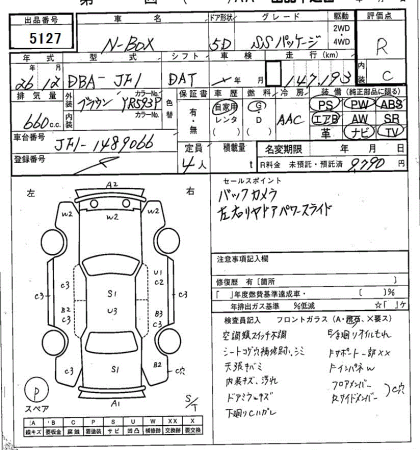 出品番号 車名 ドア形状 グレード 駆動 評価点
5127 N-BOX 5D SSパッケージ 2WD 4WD R
年式 型式 シフト 走行 C
26年12月 DBA-JF1 DAT 147,193
排気量 外装 カラーNo. 色替 保証書 車歴 燃料 冷房 装備(純正部品に限る)
660cc ブラウン YR593P 有・無 自家用 レンタ G D AAC PS PW ABS
内装 カラーNo. エアB AW SR
車台番号 革 ナビ TV
JF1-1489066 定員 積載量 名変期限 年 月 日
登録番号 4人 t R料金 未預託・預託済 9,790円
左 右
セールスポイント
バックカメラ
左右リヤドアパワースライド
注意事項記入欄
修復歴 有[箇所 ]
[ ]年度燃費基準達成車・ [ ]%
年排出ガス基準 %低減 ☆[ ]ヶ
検査員記入 フロントガラス(A・飛石、X要す)
空調類スイッチ不調
シートコゲ穴補修跡、シミ
天張キバミ
内装キズ、汚れ
ドアミラーキズ
下廻りヒドイサビ
Fサポート一部XX
FインパネW
フロアメンバー
Rサイドメンバー
C穴
A2
W2
W2
U1
C2
C3
S1
C3
B2
C3
U3
B3
C3
B2
W2
C穴
S1
A1
P
スペア
S/T
A B C P S U W X XX
線キズ 要板金 腐蝕 要塗装 サビ 凹凸 補修跡 交換跡 要交換